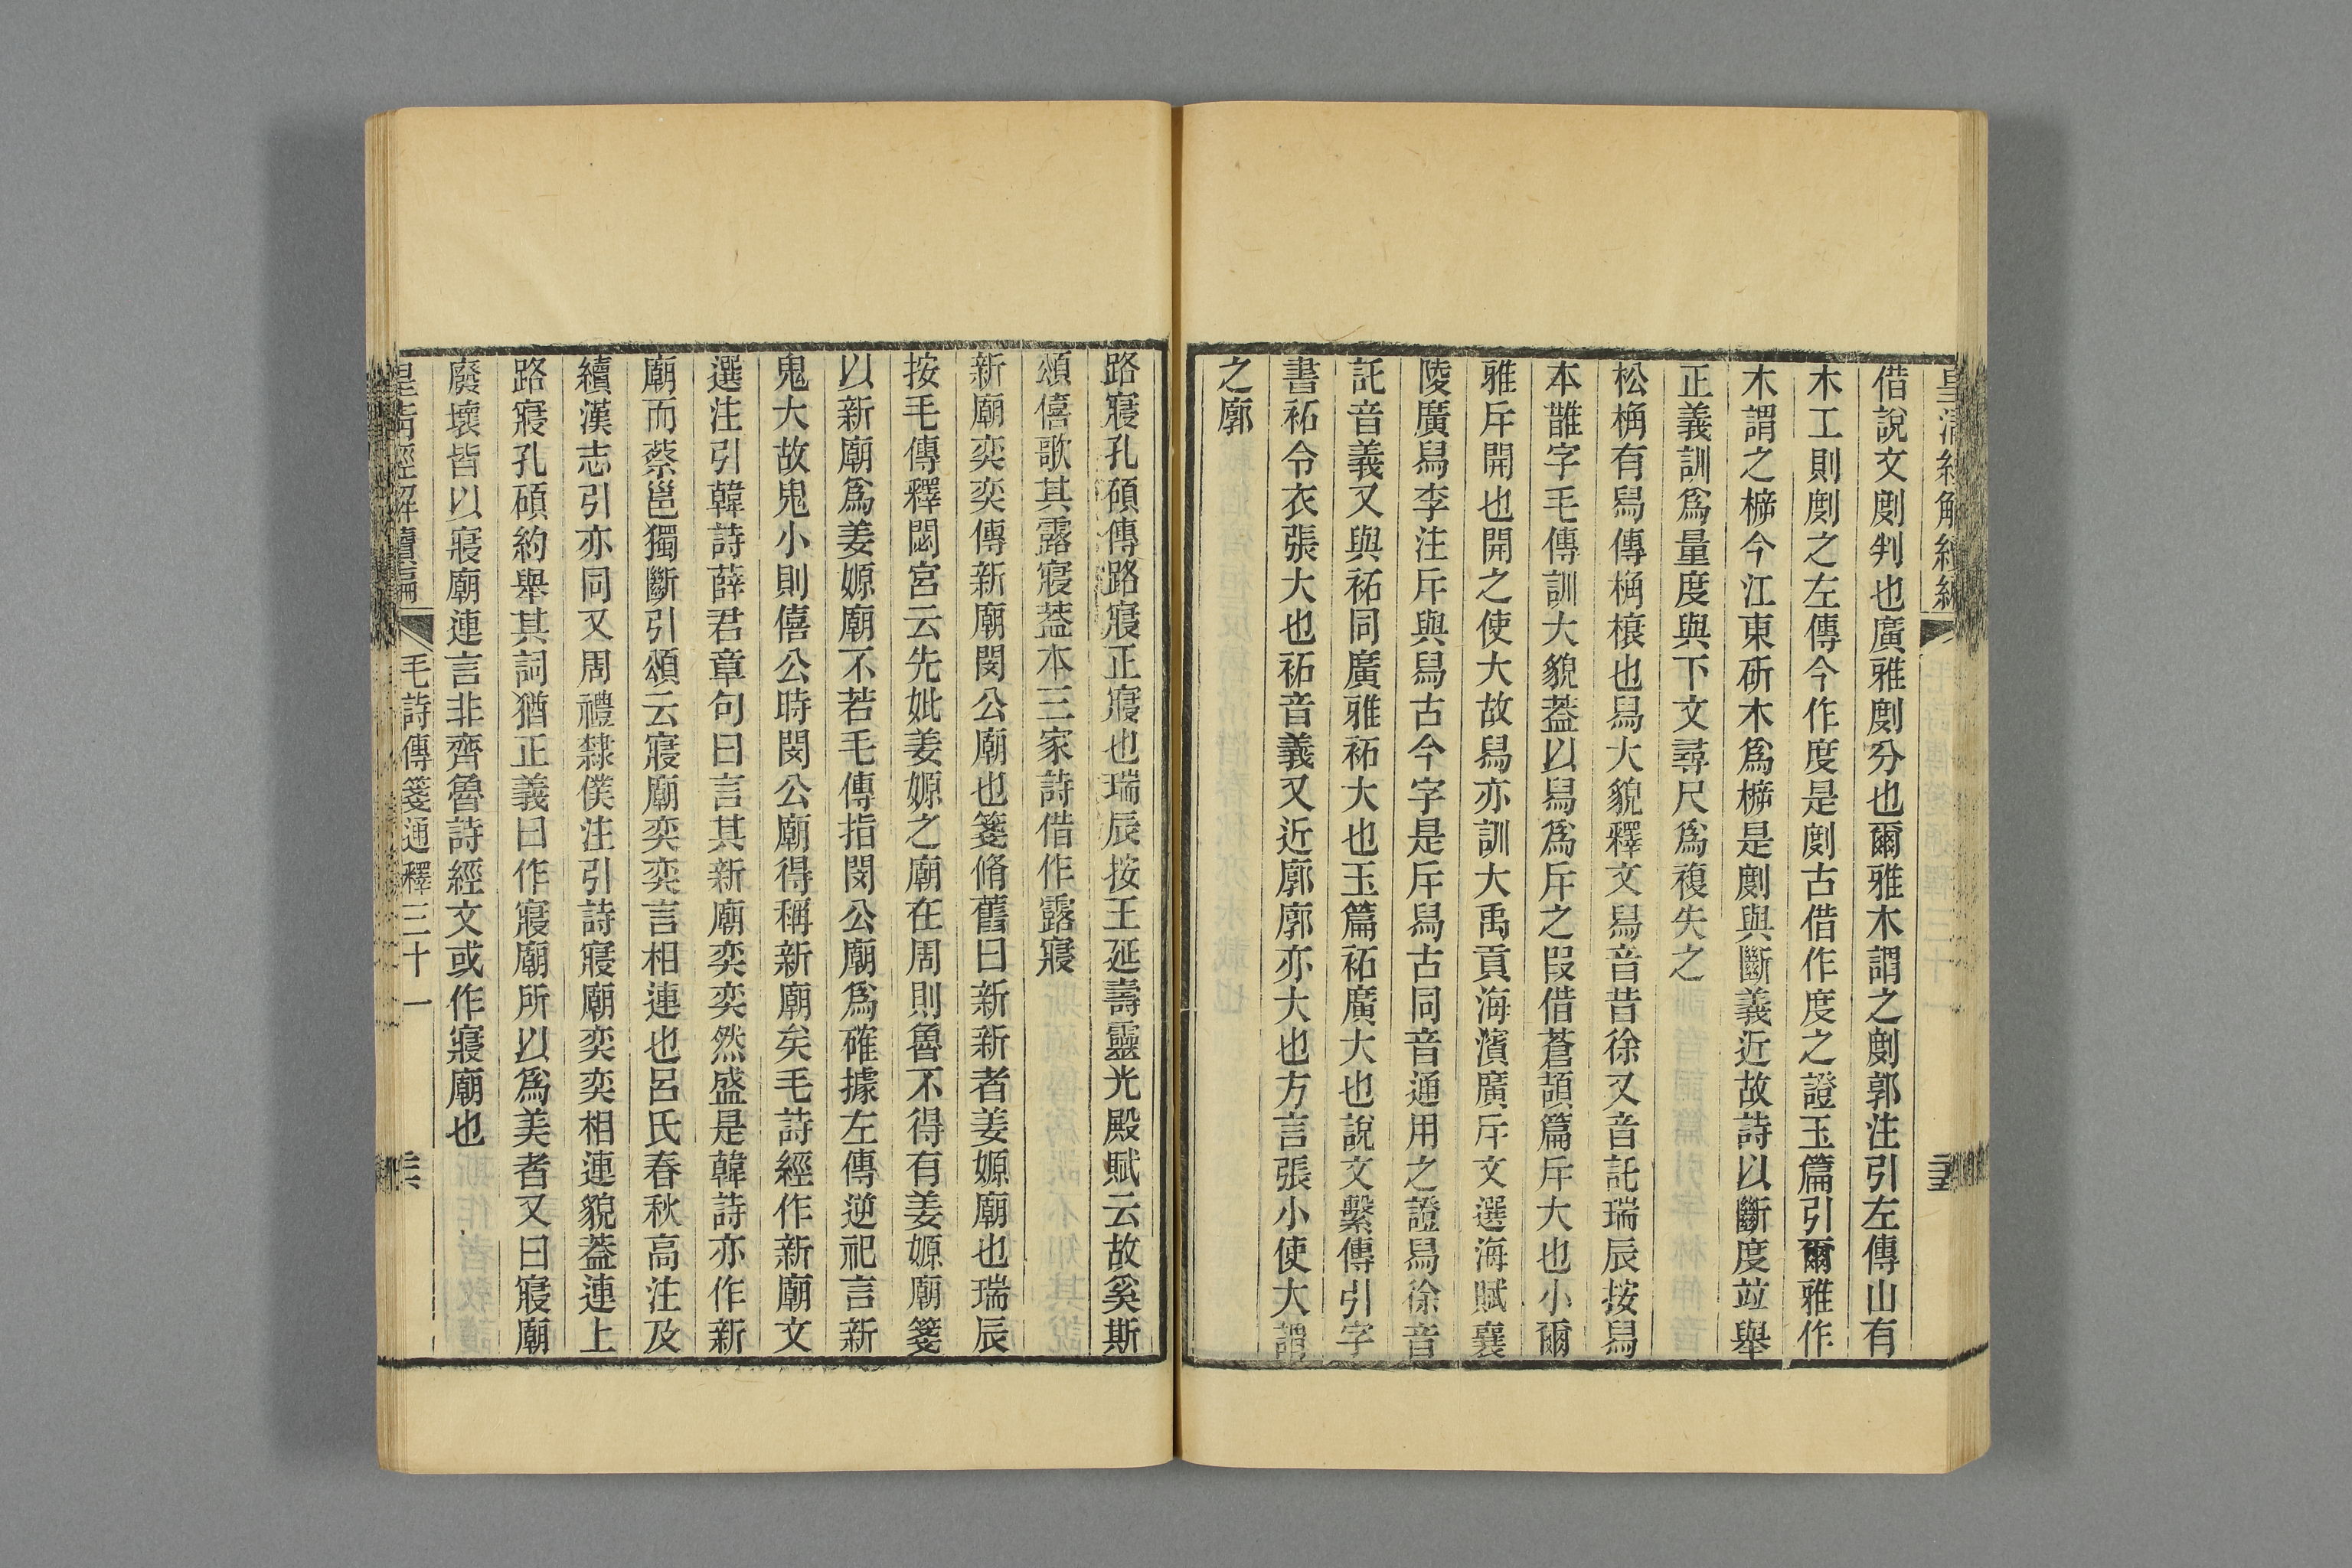 借說文劇判也廣雅劇分也爾雅木謂之劇郭注引左傳山有
木工則劇之左傳今作度是劇古借作度之證玉篇引爾雅作
木謂之㯕今江東斫木爲㯕是劇與斷義近故詩以斷度竝舉
正義訓爲量度與下文尋尺爲複失之
松桷有舄傳桷榱也舄大貌釋文舄音昔徐又音託瑞辰按舄
本誰字毛傳訓大貌葢以舄爲斥之叚借蒼頡篇斥大也小爾
雅斥開也開之使大故舄亦訓大禹貢海濱廣斥文選海賦襄
陵廣舄李注斥與舄古今字是斥舄古同音通用之證舄徐音
託音義又與袥同廣雅袥大也玉篇袥廣大也說文繫傳引字
書袥令衣張大也袥音義又近廓廓亦大也方言張小使大謂
之廓
路寢孔碩傳路寢正寢也瑞辰按王延壽靈光殿賦云故奚斯
頌僖歌其露寢葢本三家詩借作露寢
新廟奕奕傳新廟閔公廟也箋脩舊曰新新者姜嫄廟也瑞辰
按毛傳釋閟宮云先妣姜嫄之廟在周則魯不得有姜嫄廟箋
以新廟爲姜嫄廟不若毛傳指閔公廟爲確據左傳逆祀言新
鬼大故鬼小則僖公時閔公廟得稱新廟矣毛詩經作新廟文
選注引韓詩薛君章句曰言其新廟奕奕然盛是韓詩亦作新
廟而蔡邕獨斷引頌云寢廟奕奕言相連也呂氏春秋高注及
續漢志引亦同又周禮隸僕注引詩寢廟奕奕相連貌葢連上
路寢孔碩約舉其詞猶正義曰作寢廟所以爲美者又曰寢廟
廢壞皆以寢廟連言非齊魯詩經文或作寢廟也
皇清經解續編 毛詩傳箋通釋三十一